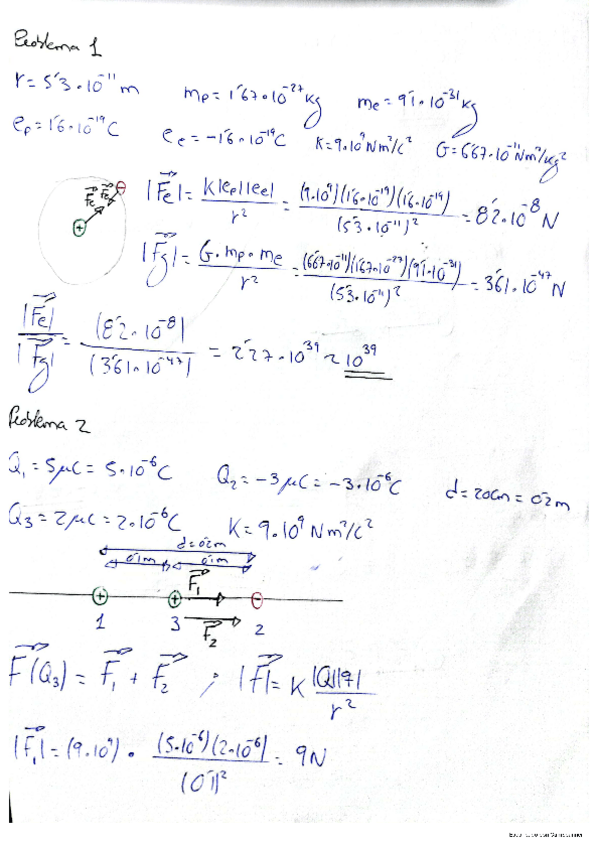 Problema 1
r = 5'3·10⁻¹¹ m    mp = 1'67·10⁻²⁷ kg    me = 9'1·10⁻³¹ kg
ep = 1'6·10⁻¹⁹ C    ee = -1'6·10⁻¹⁹ C    K = 9·10⁹ Nm²/C²    G = 6'67·10⁻¹¹ Nm²/kg²
Fe Fe
+ -
|Fe| = K|ep||ee| / r² = (9·10⁹)(1'6·10⁻¹⁹)(1'6·10⁻¹⁹) / (5'3·10⁻¹¹)² = 8'2·10⁻⁸ N
|Fg| = G·mp·me / r² = (6'67·10⁻¹¹)(1'67·10⁻²⁷)(9'1·10⁻³¹) / (5'3·10⁻¹¹)² = 3'61·10⁻⁴⁷ N
|Fe| / |Fg| = (8'2·10⁻⁸) / (3'61·10⁻⁴⁷) = 2'27·10³⁹ ≈ 10³⁹
Problema 2
Q₁ = 5μC = 5·10⁻⁶ C    Q₂ = -3μC = -3·10⁻⁶ C    d = 20cm = 0'2m
Q₃ = 2μC = 2·10⁻⁶ C    K = 9·10⁹ Nm²/C²
d = 0'2m
0'1m 0'1m
F₁
+ + -
1 3 2
F₂
F(Q₃) = F₁ + F₂ ; |F| = K |Q||q| / r²
|F₁| = (9·10⁹) · (5·10⁻⁶)(2·10⁻⁶) / (0'1)² = 9N